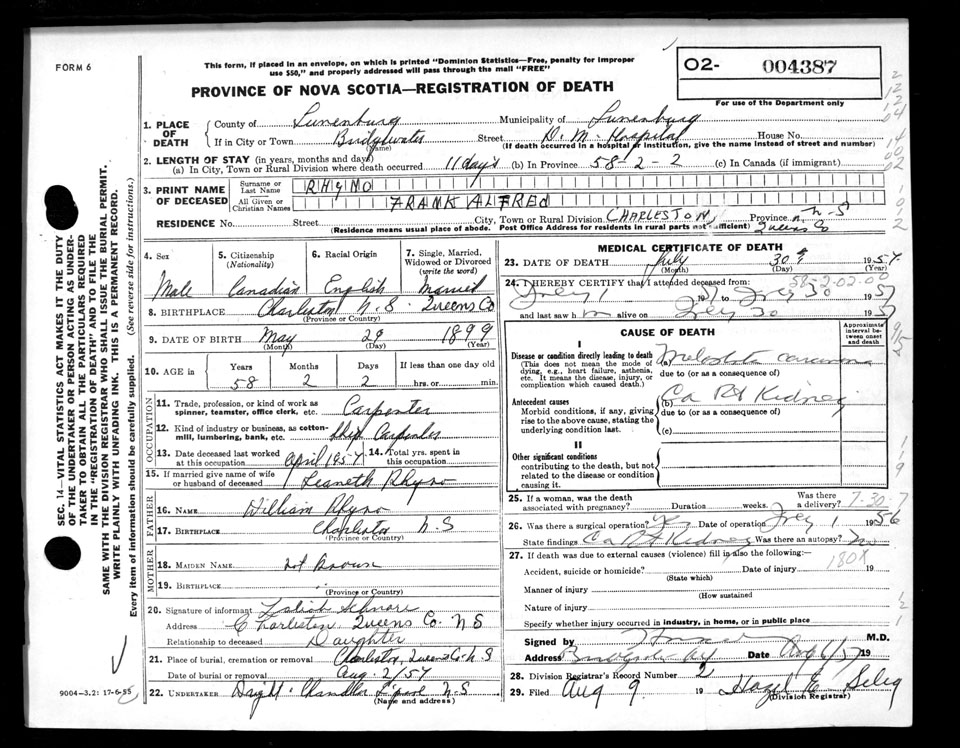 FORM 6
This form, if placed in an envelope, on which is printed "Dominion Statistics—Free, penalty for improper
use $50," and properly addressed will pass through the mail "FREE"
PROVINCE OF NOVA SCOTIA—REGISTRATION OF DEATH
O2- 004387
For use of the Department only
1. PLACE OF DEATH
County of Lunenburg Municipality of Lunenburg
If in City or Town Bridgewater Street D. M. Hospital House No.
(Name) (If death occurred in a hospital or institution, give the name instead of street and number)
2. LENGTH OF STAY (in years, months and days)
(a) In City, Town or Rural Division where death occurred 11 days (b) In Province 58-2-2 (c) In Canada (if immigrant)
3. PRINT NAME OF DECEASED
Surname or Last Name RHyNO
All Given or Christian Names FRANK ALFRED
RESIDENCE No. Street City, Town or Rural Division CHARLESTON, Province N-S
(Residence means usual place of abode. Post Office Address for residents in rural parts not sufficient) Queens Co
4. Sex Male
5. Citizenship (Nationality) Canadian
6. Racial Origin English
7. Single, Married, Widowed or Divorced (write the word) Married
8. BIRTHPLACE Charleston N.S Queens Co
(Province or Country)
9. DATE OF BIRTH May 29 1899
(Month) (Day) (Year)
10. AGE in Years Months Days If less than one day old
58 2 2 hrs. or min.
OCCUPATION
11. Trade, profession, or kind of work as spinner, teamster, office clerk, etc. Carpenter
12. Kind of industry or business, as cotton-mill, lumbering, bank, etc. Ship Carpenter
13. Date deceased last worked at this occupation April 1957 14. Total yrs. spent in this occupation
15. If married give name of wife or husband of deceased Rhyno
FATHER
16. NAME William Rhyno
17. BIRTHPLACE Charleston N S
(Province or Country)
MOTHER
18. MAIDEN NAME not known
19. BIRTHPLACE
(Province or Country)
20. Signature of informant
Address Charleston, Queens Co. N S
Relationship to deceased Daughter
21. Place of burial, cremation or removal Charleston, Queens Co. N S
Date of burial or removal Aug. 2/57
22. UNDERTAKER Chandler N-S
(Name and address)
MEDICAL CERTIFICATE OF DEATH
23. DATE OF DEATH July 30th 1957
(Month) (Day) (Year)
24. I HEREBY CERTIFY that I attended deceased from:
585-2-02-00
to July 30 1957
and last saw h m alive on July 30 1957
CAUSE OF DEATH
Approximate interval between onset and death
I
Disease or condition directly leading to death
(This does not mean the mode of dying, e.g., heart failure, asthenia, etc. It means the disease, injury, or complication which caused death.)
(a) carcinoma
due to (or as a consequence of)
Antecedent causes
Morbid conditions, if any, giving rise to the above cause, stating the underlying condition last.
(b) Ca Rt Kidney
due to (or as a consequence of)
(c)
II
Other significant conditions
contributing to the death, but not related to the disease or condition causing it.
25. If a woman, was the death associated with pregnancy? Duration weeks. Was there a delivery?
7-30-7
26. Was there a surgical operation? yes Date of operation 1 1956
State findings Ca Rt Kidney Was there an autopsy? no
27. If death was due to external causes (violence) fill in also the following:—
180X
Accident, suicide or homicide? Date of injury 19
(State which)
Manner of injury
(How sustained
Nature of injury
Specify whether injury occurred in industry, in home, or in public place
Signed by M.D.
Address Date Aug 6/57 19
28. Division Registrar's Record Number 2
29. Filed Aug 9 19 Hazel E Seleg
(Division Registrar)
SEC. 14—VITAL STATISTICS ACT MAKES IT THE DUTY
OF THE UNDERTAKER OR PERSON ACTING AS UNDER-
TAKER TO OBTAIN ALL THE PARTICULARS REQUIRED
IN THE "REGISTRATION OF DEATH" AND TO FILE THE
SAME WITH THE DIVISION REGISTRAR WHO SHALL ISSUE THE BURIAL PERMIT.
WRITE PLAINLY WITH UNFADING INK. THIS IS A PERMANENT RECORD.
Every item of information should be carefully supplied. (See reverse side for instructions.)
9004-3.2: 17-6-55